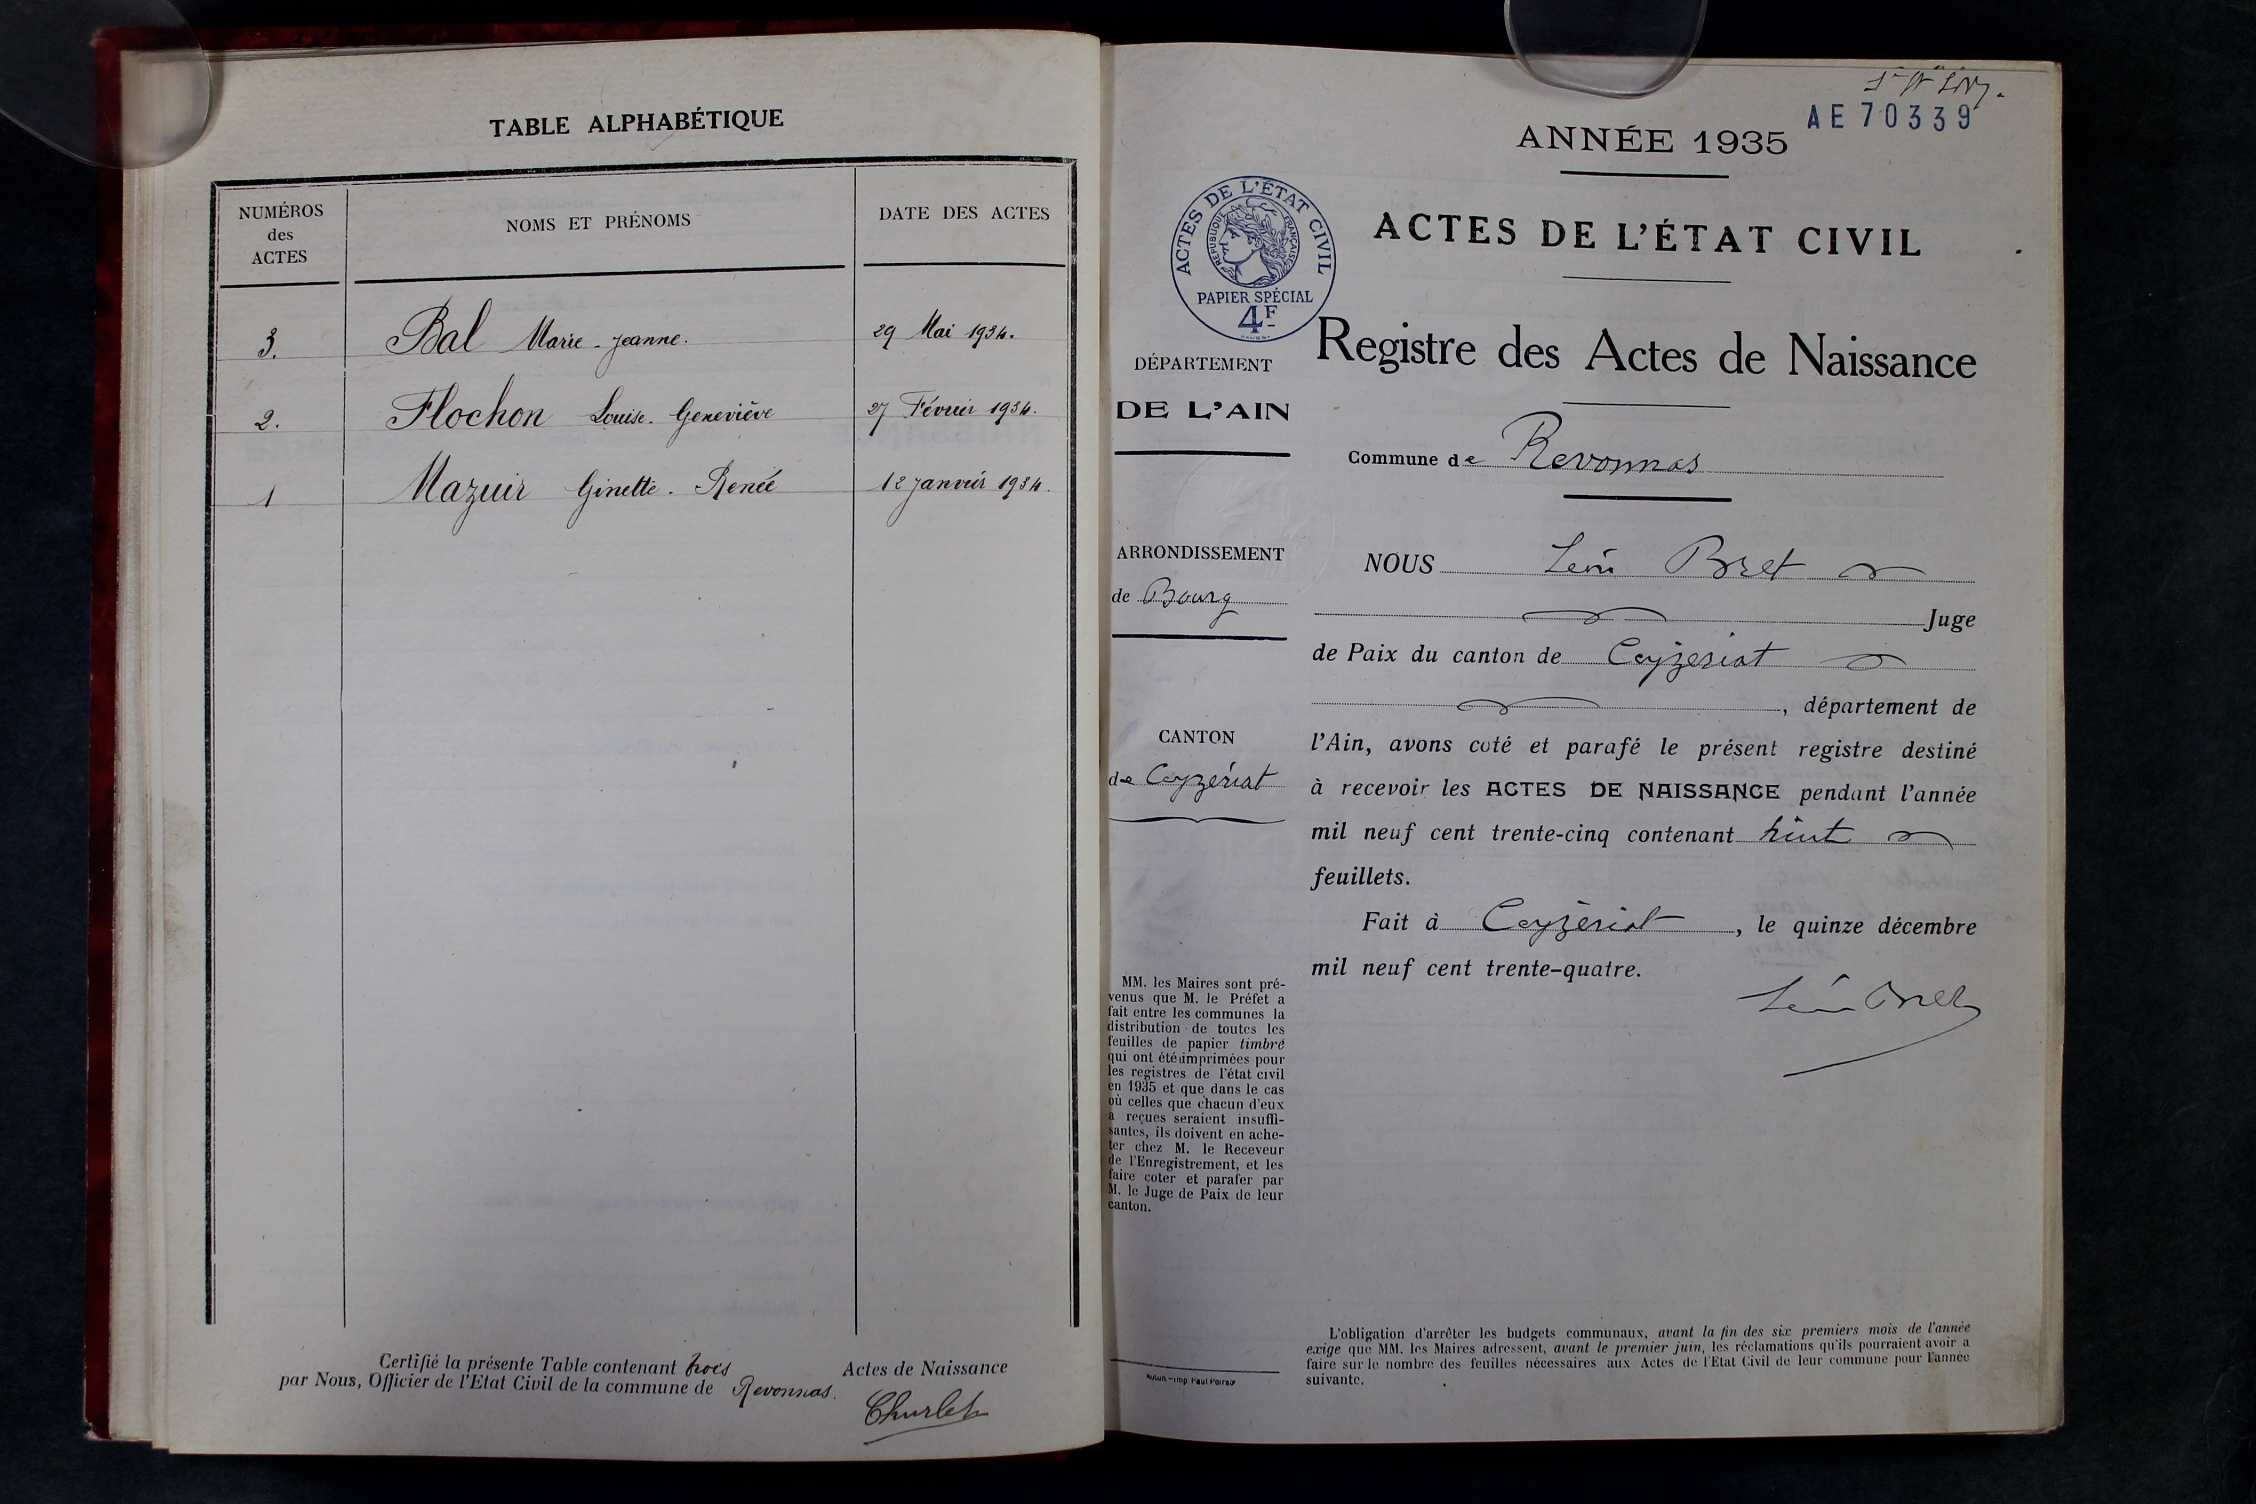 TABLE ALPHABÉTIQUE
NUMÉROS
des
ACTES
NOMS ET PRÉNOMS
DATE DES ACTES
3. Bal Marie-Jeanne. 29 Mai 1934.
2. Flochon Louise. Geneviève 27 Février 1934.
1 Mazuir Ginette. Renée 12 Janvier 1934.
Certifié la présente Table contenant trois Actes de Naissance
par Nous, Officier de l'Etat Civil de la commune de Revonnas.
Churlet
AE 70339
ANNÉE 1935
ACTES DE L'ÉTAT CIVIL
RÉPUBLIQUE FRANÇAISE
PAPIER SPÉCIAL
4F
ACTES DE L'ÉTAT CIVIL
Registre des Actes de Naissance
Commune de Revonnas
DÉPARTEMENT
DE L'AIN
ARRONDISSEMENT
de Bourg
CANTON
de Ceyzériat
MM. les Maires sont pré-
venus que M. le Préfet a
fait entre les communes la
distribution de toutes les
feuilles de papier timbré
qui ont été imprimées pour
les registres de l'état civil
en 1935 et que dans le cas
où celles que chacun d'eux
a reçues seraient insuffi-
santes, ils doivent en ache-
ter chez M. le Receveur
de l'Enregistrement, et les
faire coter et parafer par
M. le Juge de Paix de leur
canton.
NOUS Léon Bret
Juge
de Paix du canton de Ceyzeriat
, département de
l'Ain, avons coté et parafé le présent registre destiné
à recevoir les ACTES DE NAISSANCE pendant l'année
mil neuf cent trente-cinq contenant huit
feuillets.
Fait à Ceyzériat, le quinze décembre
mil neuf cent trente-quatre.
Léon Bret
L'obligation d'arrêter les budgets communaux, avant la fin des six premiers mois de l'année
exige que MM. les Maires adressent, avant le premier juin, les réclamations qu'ils pourraient avoir à
faire sur le nombre des feuilles nécessaires aux Actes de l'Etat Civil de leur commune pour l'année
suivante.